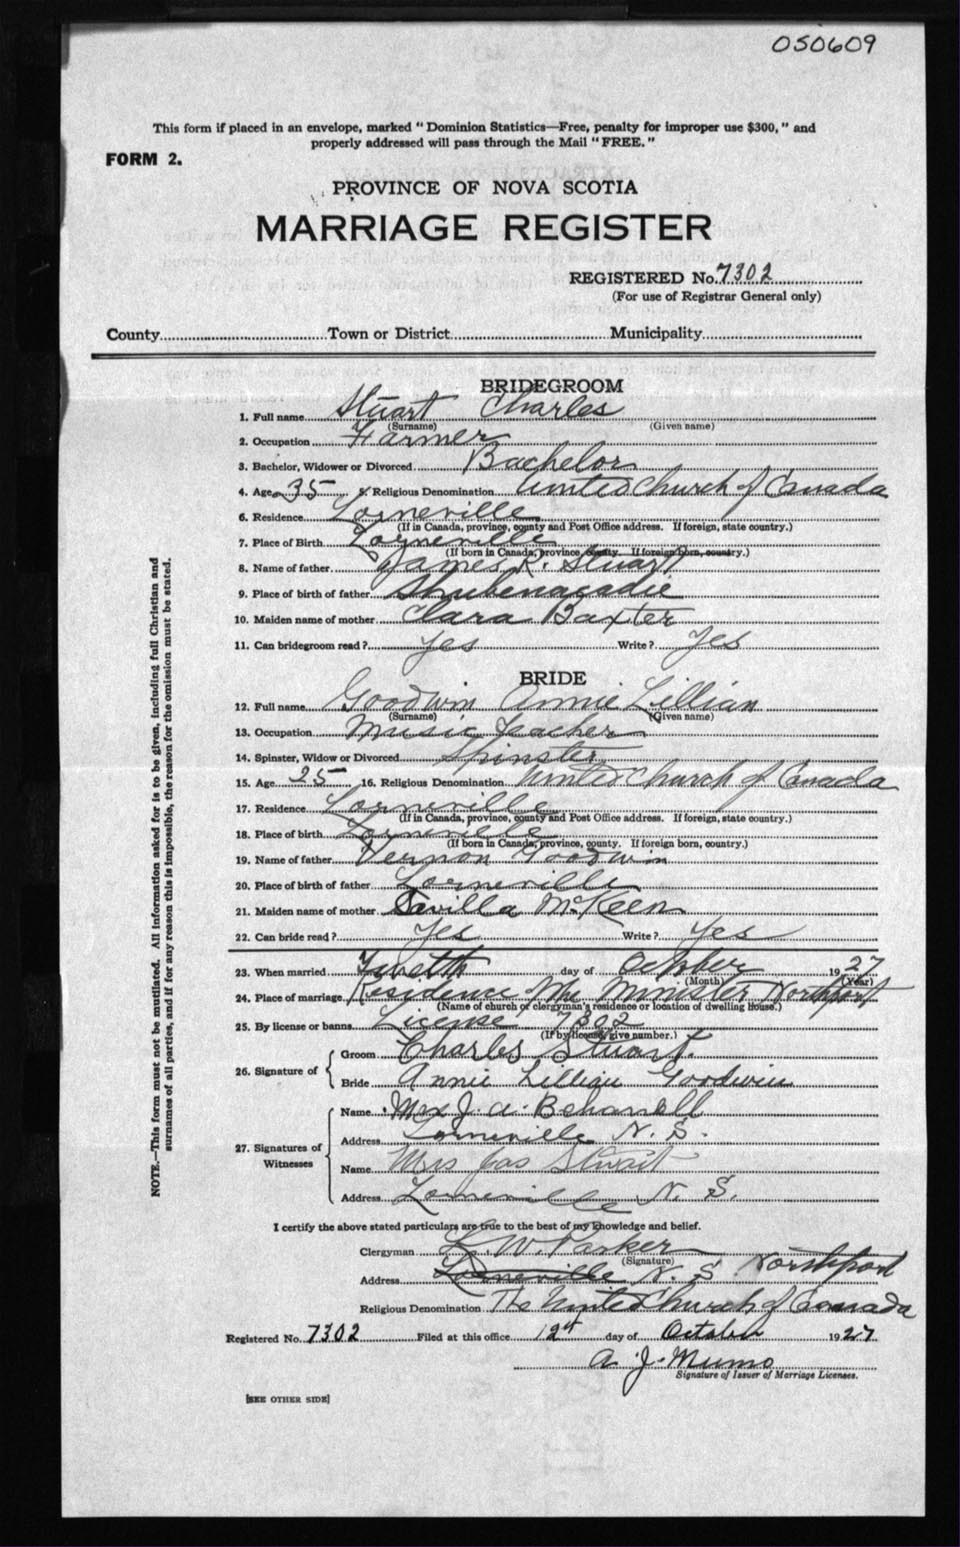 050609
This form if placed in an envelope, marked " Dominion Statistics—Free, penalty for improper use $300, " and
properly addressed will pass through the Mail " FREE. "
FORM 2.
PROVINCE OF NOVA SCOTIA
MARRIAGE REGISTER
REGISTERED No. 7302
(For use of Registrar General only)
County Town or District Municipality
BRIDEGROOM
1. Full name Stuart Charles
(Surname) (Given name)
2. Occupation Farmer
3. Bachelor, Widower or Divorced Bachelor
4. Age 35 5. Religious Denomination United Church of Canada
6. Residence Lorneville
(If in Canada, province, county and Post Office address. If foreign, state country.)
7. Place of Birth Lorneville
(If born in Canada, province, county. If foreign born, country.)
8. Name of father James R. Stuart
9. Place of birth of father Shubenacadie
10. Maiden name of mother Clara Baxter
11. Can bridegroom read ? Yes Write ? Yes
BRIDE
12. Full name Goodwin Annie Lillian
(Surname) (Given name)
13. Occupation Music Teacher
14. Spinster, Widow or Divorced Spinster
15. Age 25 16. Religious Denomination United Church of Canada
17. Residence Lorneville
(If in Canada, province, county and Post Office address. If foreign, state country.)
18. Place of birth Lorneville
(If born in Canada, province, county. If foreign born, country.)
19. Name of father Vernon Goodwin
20. Place of birth of father Lorneville
21. Maiden name of mother Savilla McKeen
22. Can bride read ? Yes Write ? Yes
23. When married day of October 1927
(Month) (Year)
24. Place of marriage Residence the Minister Northport
(Name of church or clergyman's residence or location of dwelling house.)
25. By license or banns License 7302
(If by license, give number.)
26. Signature of
Groom Charles Stuart.
Bride Annie Lillian Goodwin
27. Signatures of Witnesses
Name Mrs J. A.
Address Lorneville N. S.
Name Mrs Jas Stuart
Address Lorneville N. S.
I certify the above stated particulars are true to the best of my knowledge and belief.
Clergyman W. Parker
(Signature)
Address Lorneville N. S Northport
Religious Denomination The United Church of Canada
Registered No. 7302 Filed at this office 12th day of October 1927
A. J. Munro
Signature of Issuer of Marriage Licenses.
[SEE OTHER SIDE]
NOTE.—This form must not be mutilated. All information asked for is to be given, including full Christian and
surnames of all parties, and if for any reason this is impossible, the reason for the omission must be stated.